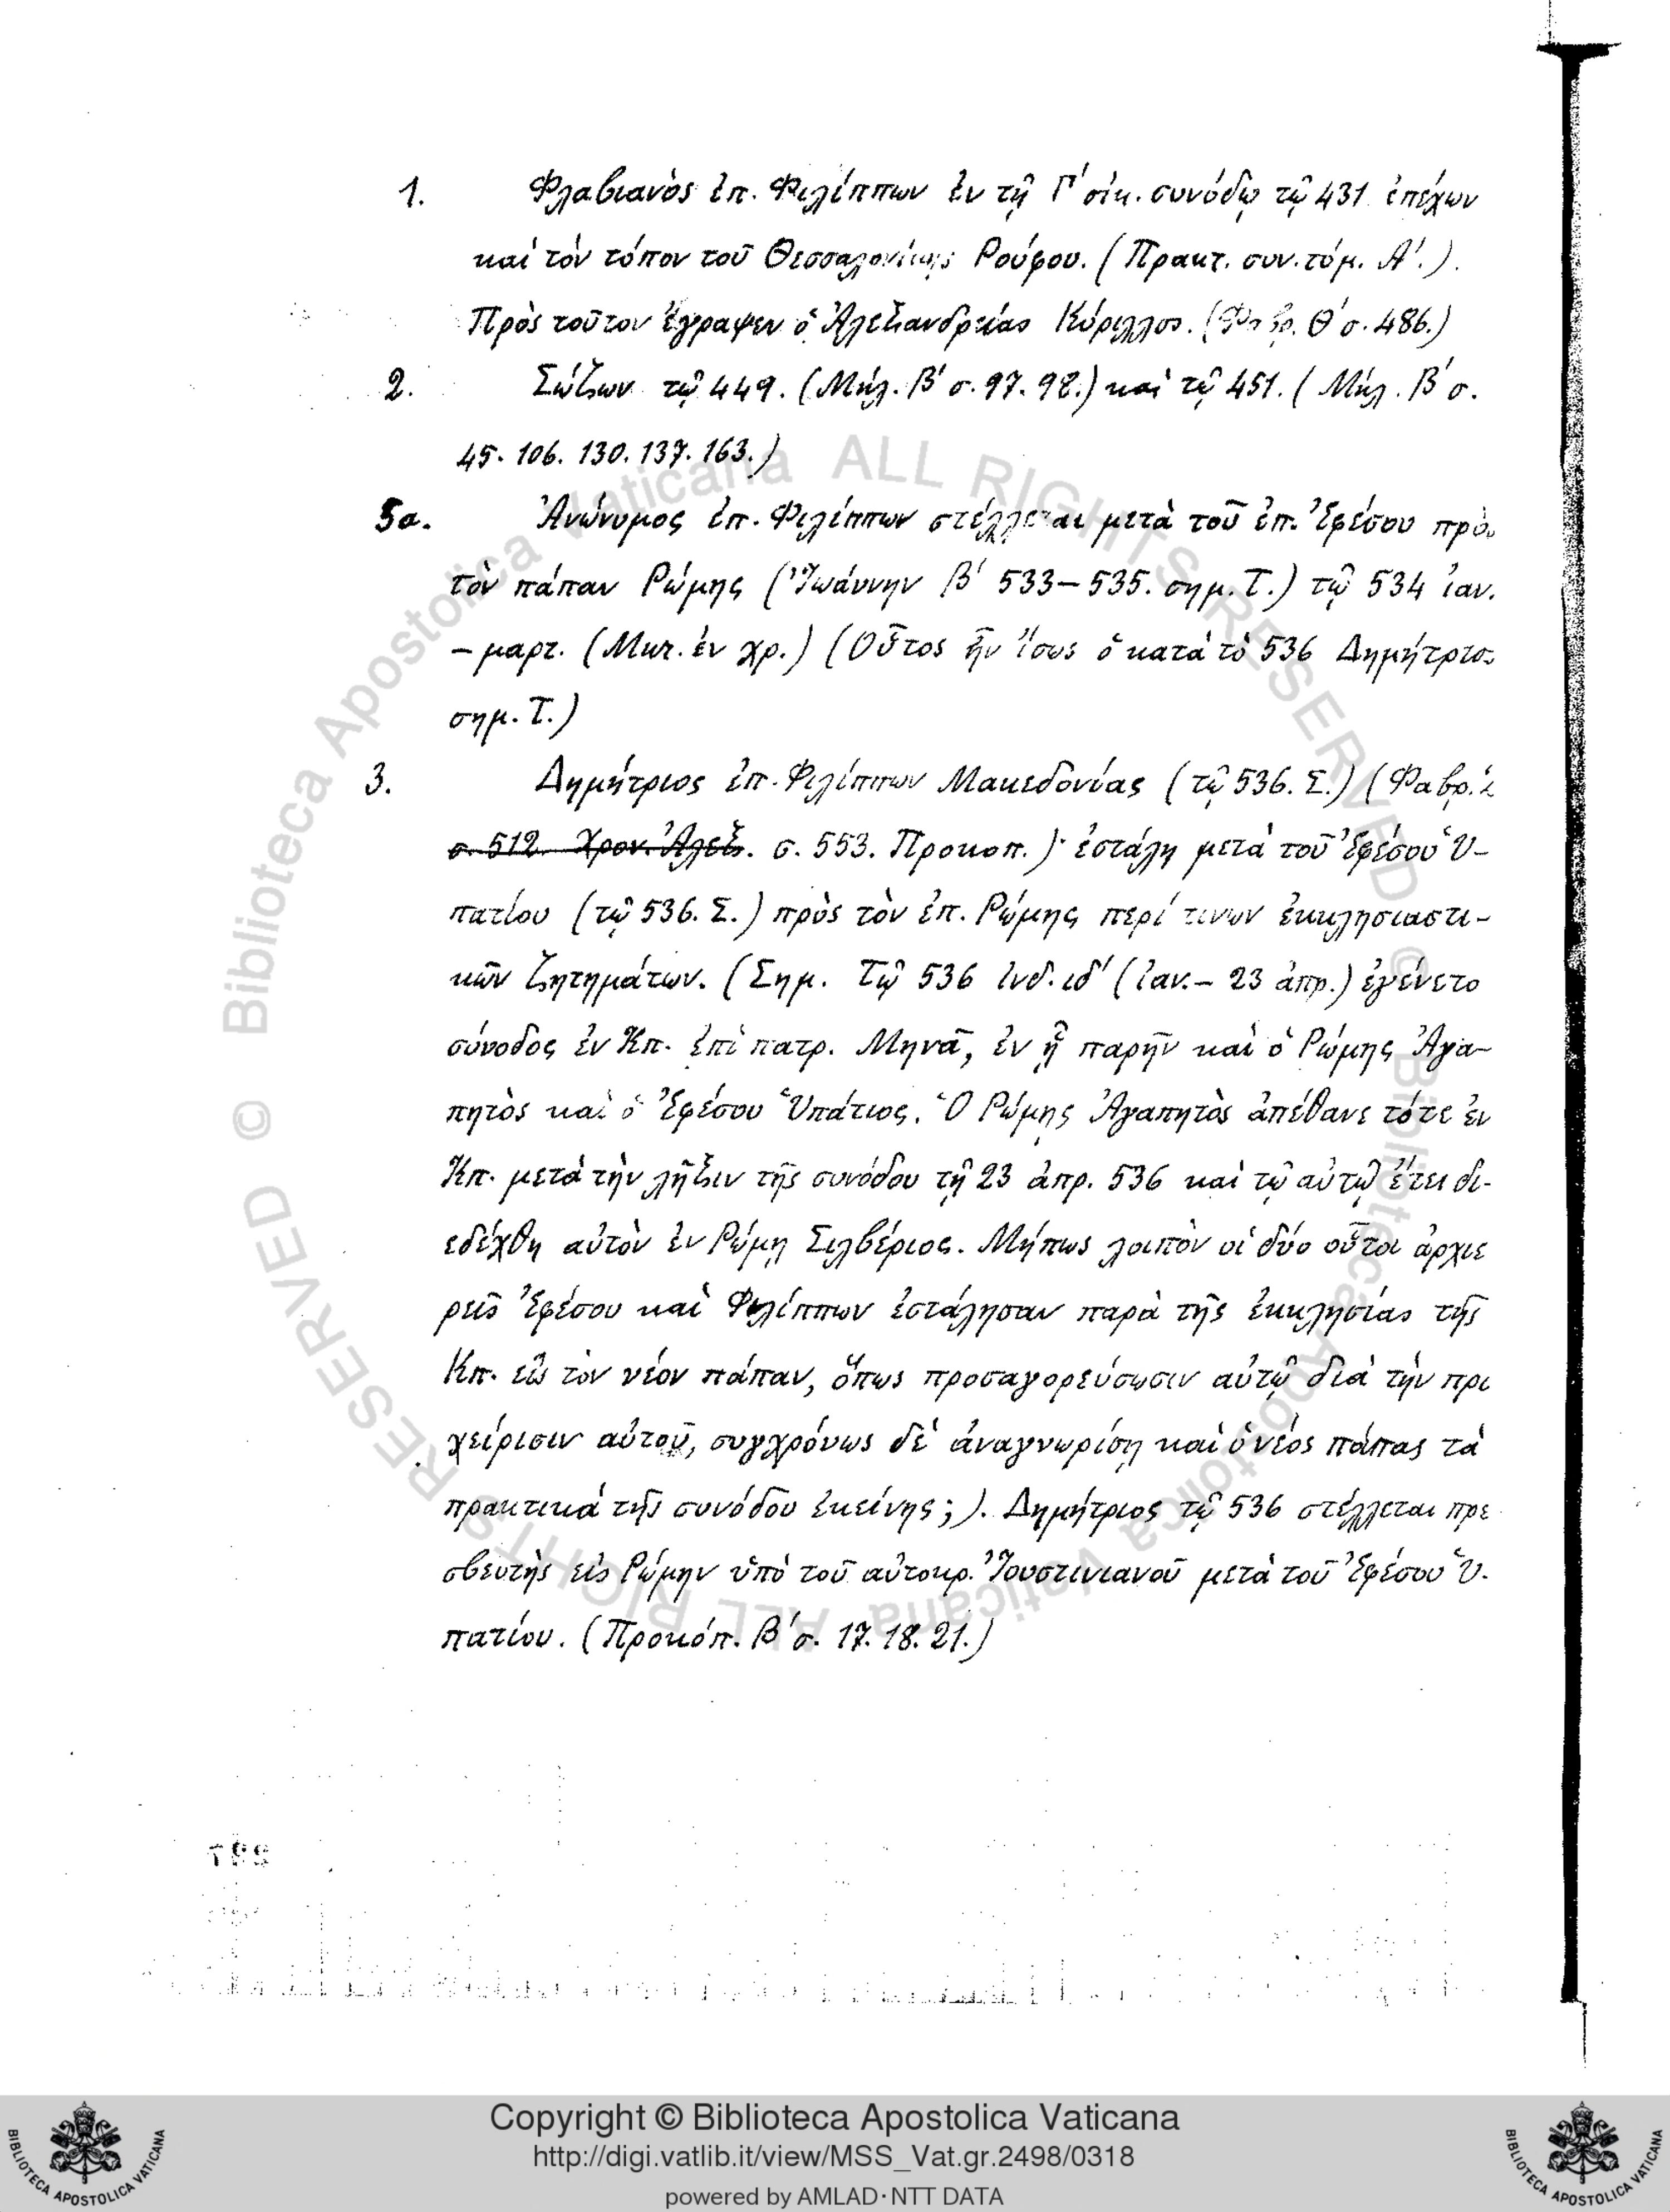 1. Φλαβιανὸς ἐπ. Φιλίππων ἐν τῇ Γ' οἰκ. συνόδῳ τῷ 431 ἐπέχων
καὶ τὸν τόπον τοῦ Θεσσαλονίκης Ρούφου. (Πρακτ. συν. τόμ. Α'.).
Πρὸς τοῦτον ἔγραψεν ὁ Ἀλεξανδρείας Κύριλλος. (Φαβρ. Θ' σ. 486.)
2. Σώζων τῷ 449. (Μήλ. Β' σ. 97. 98.) καὶ τῷ 451. (Μήλ. Β' σ.
45. 106. 130. 137. 163.)
5α. Ἀνώνυμος ἐπ. Φιλίππων στέλλεται μετὰ τοῦ ἐπ. Ἐφέσου πρὸς
τὸν πάπαν Ρώμης (Ἰωάννην β' 533–535. σημ. Τ.) τῷ 534 ἰαν.
– μαρτ. (Μικτ. ἐν χρ.) (Οὗτος ἦν ἴσως ὁ κατὰ τὸ 536 Δημήτριος
σημ. Τ.)
3. Δημήτριος ἐπ. Φιλίππων Μακεδονίας (τῷ 536. Σ.) (Φαβρ.
σ. 512. Χρον. Ἀλεξ. σ. 553. Προκοπ.)· ἐστάλη μετὰ τοῦ Ἐφέσου Ὑ-
πατίου (τῷ 536. Σ.) πρὸς τὸν ἐπ. Ρώμης περί τινων ἐκκλησιαστι-
κῶν ζητημάτων. (Σημ. Τῷ 536 ἰνδ. ιδ' (ἰαν. – 23 ἀπρ.) ἐγένετο
σύνοδος ἐν Κπ. ἐπὶ πατρ. Μηνᾶ, ἐν ᾗ παρῆν καὶ ὁ Ρώμης Ἀγα-
πητὸς καὶ ὁ Ἐφέσου Ὑπάτιος. Ὁ Ρώμης Ἀγαπητὸς ἀπέθανε τότε ἐν
Κπ. μετὰ τὴν λῆξιν τῆς συνόδου τῇ 23 ἀπρ. 536 καὶ τῷ αὐτῷ ἔτει δι-
εδέχθη αὐτὸν ἐν Ρώμῃ Σιλβέριος. Μήπως λοιπὸν οἱ δύο οὗτοι ἀρχιε
ρεῖς Ἐφέσου καὶ Φιλίππων ἐστάλησαν παρὰ τῆς ἐκκλησίας τῆς
Κπ. εἰς τὸν νέον πάπαν, ὅπως προσαγορεύσωσιν αὐτῷ διὰ τὴν προ
χείρισιν αὐτοῦ, συγχρόνως δὲ ἀναγνωρίσῃ καὶ ὁ νέος πάπας τὰ
πρακτικὰ τῆς συνόδου ἐκείνης;). Δημήτριος τῷ 536 στέλλεται πρε
σβευτὴς εἰς Ρώμην ὑπὸ τοῦ αὐτοκρ. Ἰουστινιανοῦ μετὰ τοῦ Ἐφέσου Ὑ-
πατίου. (Προκόπ. Β' σ. 17. 18. 21.)
© Biblioteca Apostolica Vaticana ALL RIGHTS RESERVED © Biblioteca Apostolica Vaticana ALL RIGHTS RESERVED
Copyright © Biblioteca Apostolica Vaticana
http://digi.vatlib.it/view/MSS_Vat.gr.2498/0318
powered by AMLAD·NTT DATA
BIBLIOTECA APOSTOLICA VATICANA
BIBLIOTECA APOSTOLICA VATICANA